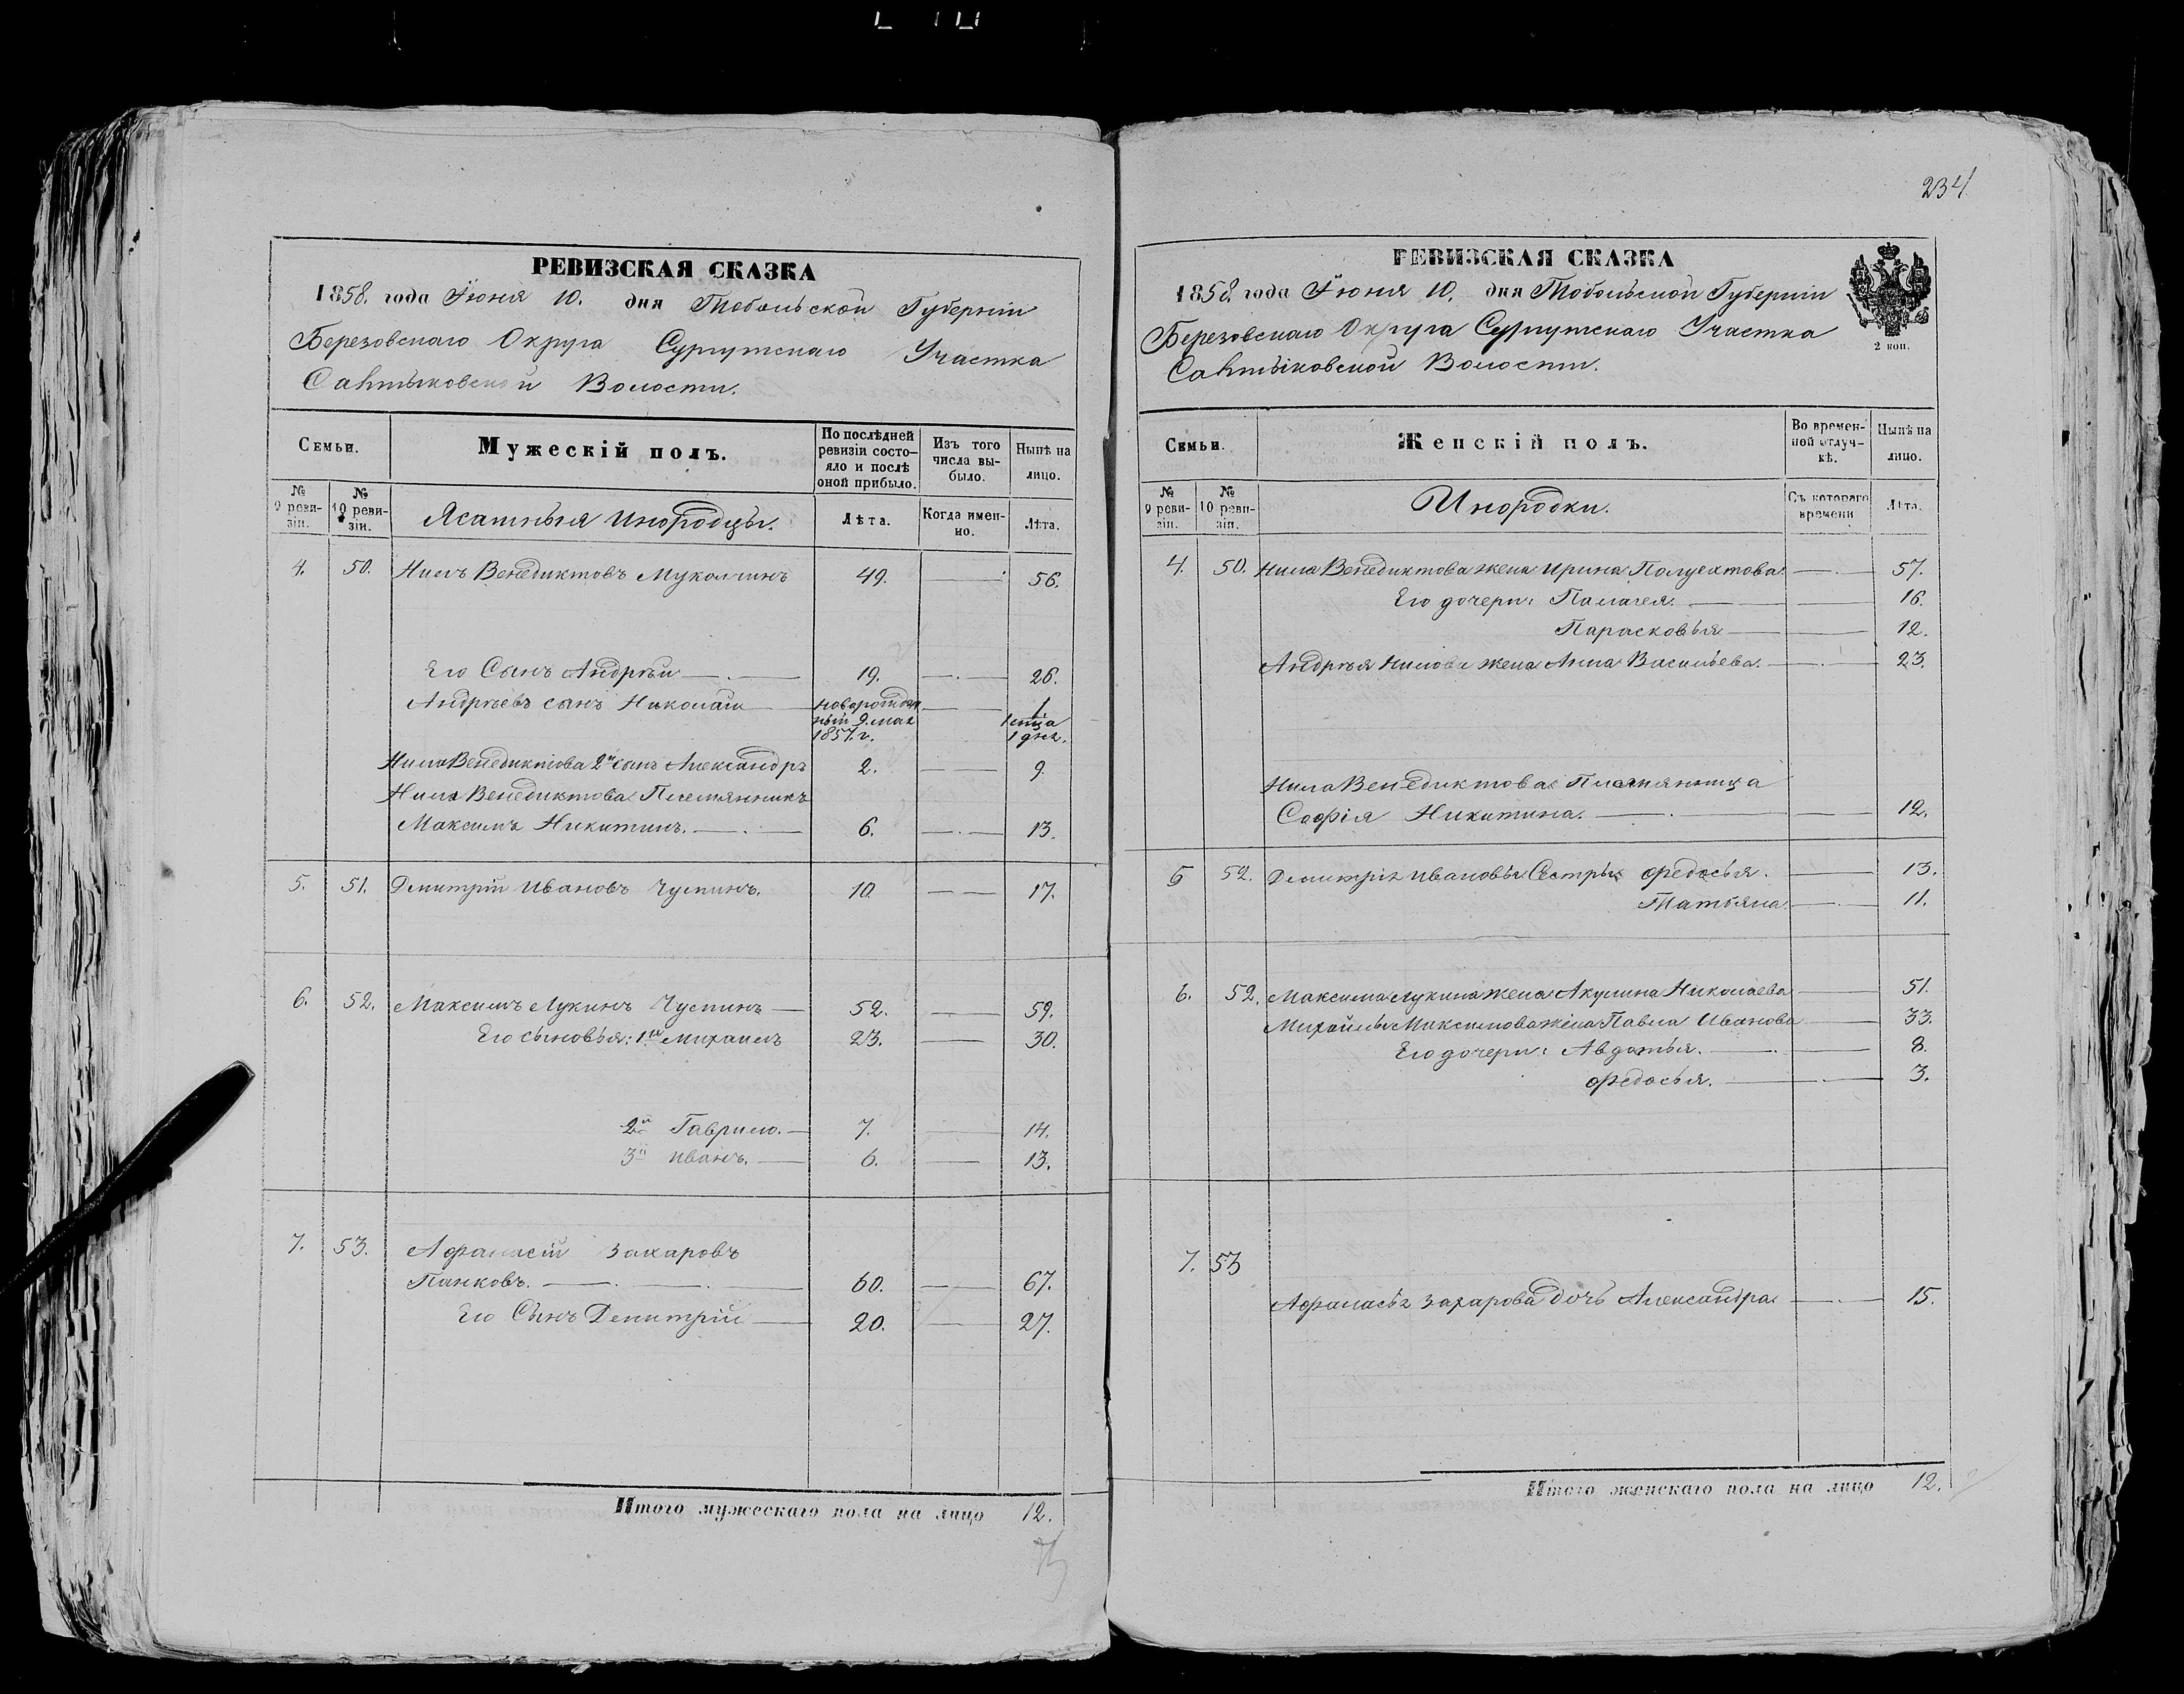 РЕВИЗСКАЯ СКАЗКА
1858. года Июня 10. дня Тобольской Губерніи
Березовскаго Округа Сургутскаго Участка
Салтыковской Волости.
Семьи.
Мужескій полъ.
По послѣдней ревизіи состо-
яло и послѣ оной прибыло.
Изъ того числа вы-
было.
Нынѣ на лицо.
№ 9 реви-
зіи.
№ 10 реви-
зіи.
Ясашныя инородцы.
Лѣта.
Когда имен-
но.
Лѣта.
4. 50. Нилъ Венедиктовъ Мукалчинъ 49. 56.
Его Сынъ Андрѣй 19. 26.
Андрѣевъ сынъ Николай новорожден
ный 9. мая
1857. г.
1
1 мца
1 дня.
Нила Венедиктова 2й сынъ Александръ 2. 9.
Нила Венедиктова Племянникъ
Максимъ Никитинъ. 6. 13.
5. 51. Димитрій Ивановъ Чуспинъ. 10. 17.
6. 52. Максимъ Лукинъ Чуспинъ 52. 59.
Его сыновья: 1й Михаилъ 23. 30.
2й Гаврило. 7. 14.
3й Иванъ. 6. 13.
7. 53. Афанасій Захаровъ
Панковъ. 60. 67.
Его Сынъ Димитрій 20. 27.
Итого мужескаго пола на лицо 12.
234
РЕВИЗСКАЯ СКАЗКА
1858. года Июня 10. дня Тобольской Губерніи
Березовскаго Округа Сургутскаго Участка
Салтыковской Волости.
2 коп.
Семьи.
Женскій полъ.
Во времен-
ной отлуч-
кѣ.
Нынѣ на лицо.
№ 9 реви-
зіи.
№ 10 реви-
зіи.
Инородки.
Съ котораго времени
Лѣта.
4. 50. Нила Венедиктова жена Ирина Полуехтова. 57.
Его дочери: Палагея. 16.
Парасковья 12.
Андрѣя Нилова жена Анна Васильева. 23.
Нила Венедиктова Племянница
Софія Никитина. 12.
5 52. Димитрія Ивановы Сестры Федосья. 13.
Татьяна. 11.
6. 52. Максима Лукина жена Акулина Николаева 51.
Михайлы Максимова жена Павла Иванова 33.
Его дочери: Авдотья. 8.
Федосья. 3.
7. 53
Афанасья Захарова дочь Александра 15.
Итого женскаго пола на лицо 12.